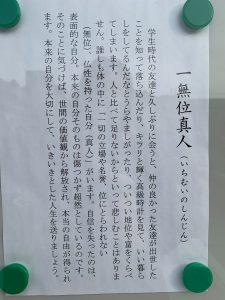 一無位真人(いちむいのしんじん)
学生時代の友達と久しぶりに会うと、仲の良かった友達が出世した
ことを知って落ち込んだり、キラリと輝く高級時計を見て、いい暮ら
しをしてるんだなとうらやましがったり、ついつい地位や富をくらべ
てしまいます。人と比べて足りないからといって悲しむことはありま
せん。誰しも体の中に「一切の立場や名誉、位にとらわれない
(無位)、仏性を持った自分(真人)」がいます。自信を失ったのは、
表面的な自分。本来の自分そのものは傷つかず超然としているのです。
そのことに気づけば、世間の価値観から解放され、本当の自由が得られ
ます。本来の自分を大切にして、いきいきとした人生を送りましょう。